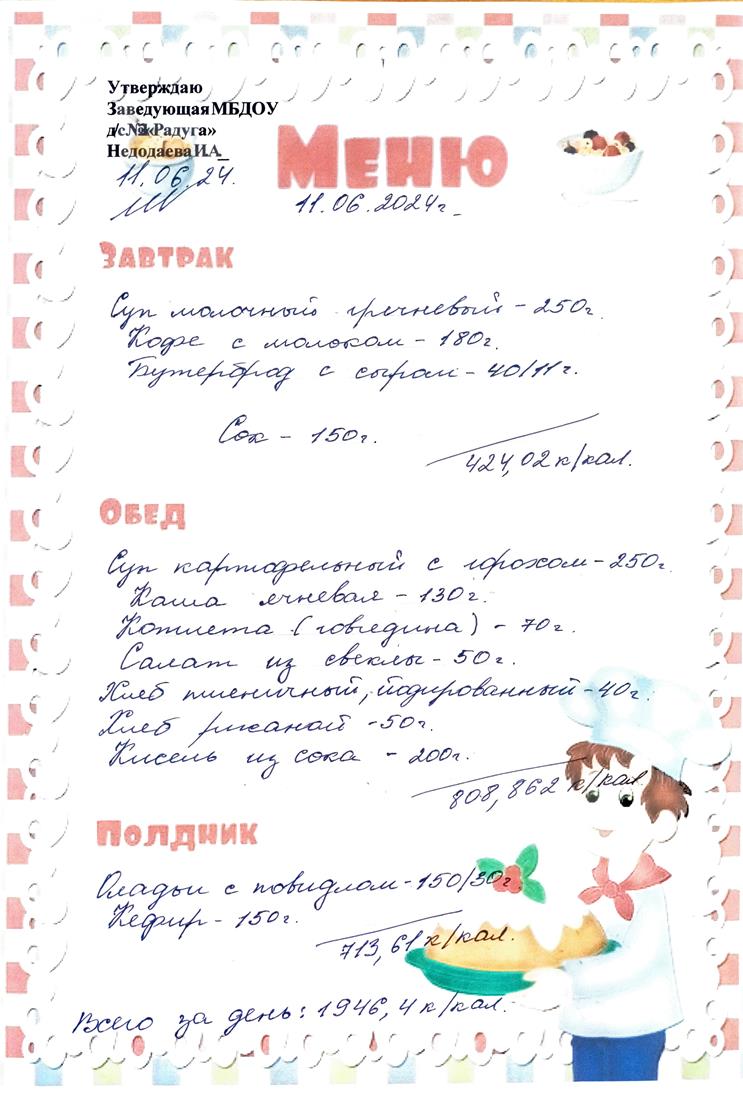 Утверждаю
Заведующая МБДОУ
д/с№ «Радуга»
Недодаева И.А_
11.06.24.
Меню
11.06.2024г_
Завтрак
Суп молочный гречневый - 250г.
Кофе с молоком - 180г.
Бутерброд с сыром - 40/11г.
Сок - 150г.
424,02 к/кал.
Обед
Суп картофельный с горохом - 250г.
Каша ячневая - 130г.
Котлета (говядина) - 70г.
Салат из свеклы - 50г.
Хлеб пшеничный, йодированный - 40г.
Хлеб ржаной - 50г.
Кисель из сока - 200г.
808,862 к/кал
Полдник
Оладьи с повидлом - 150/30г.
Кефир - 150г.
713,61 к/кал.
Всего за день: 1946,4 к/кал.